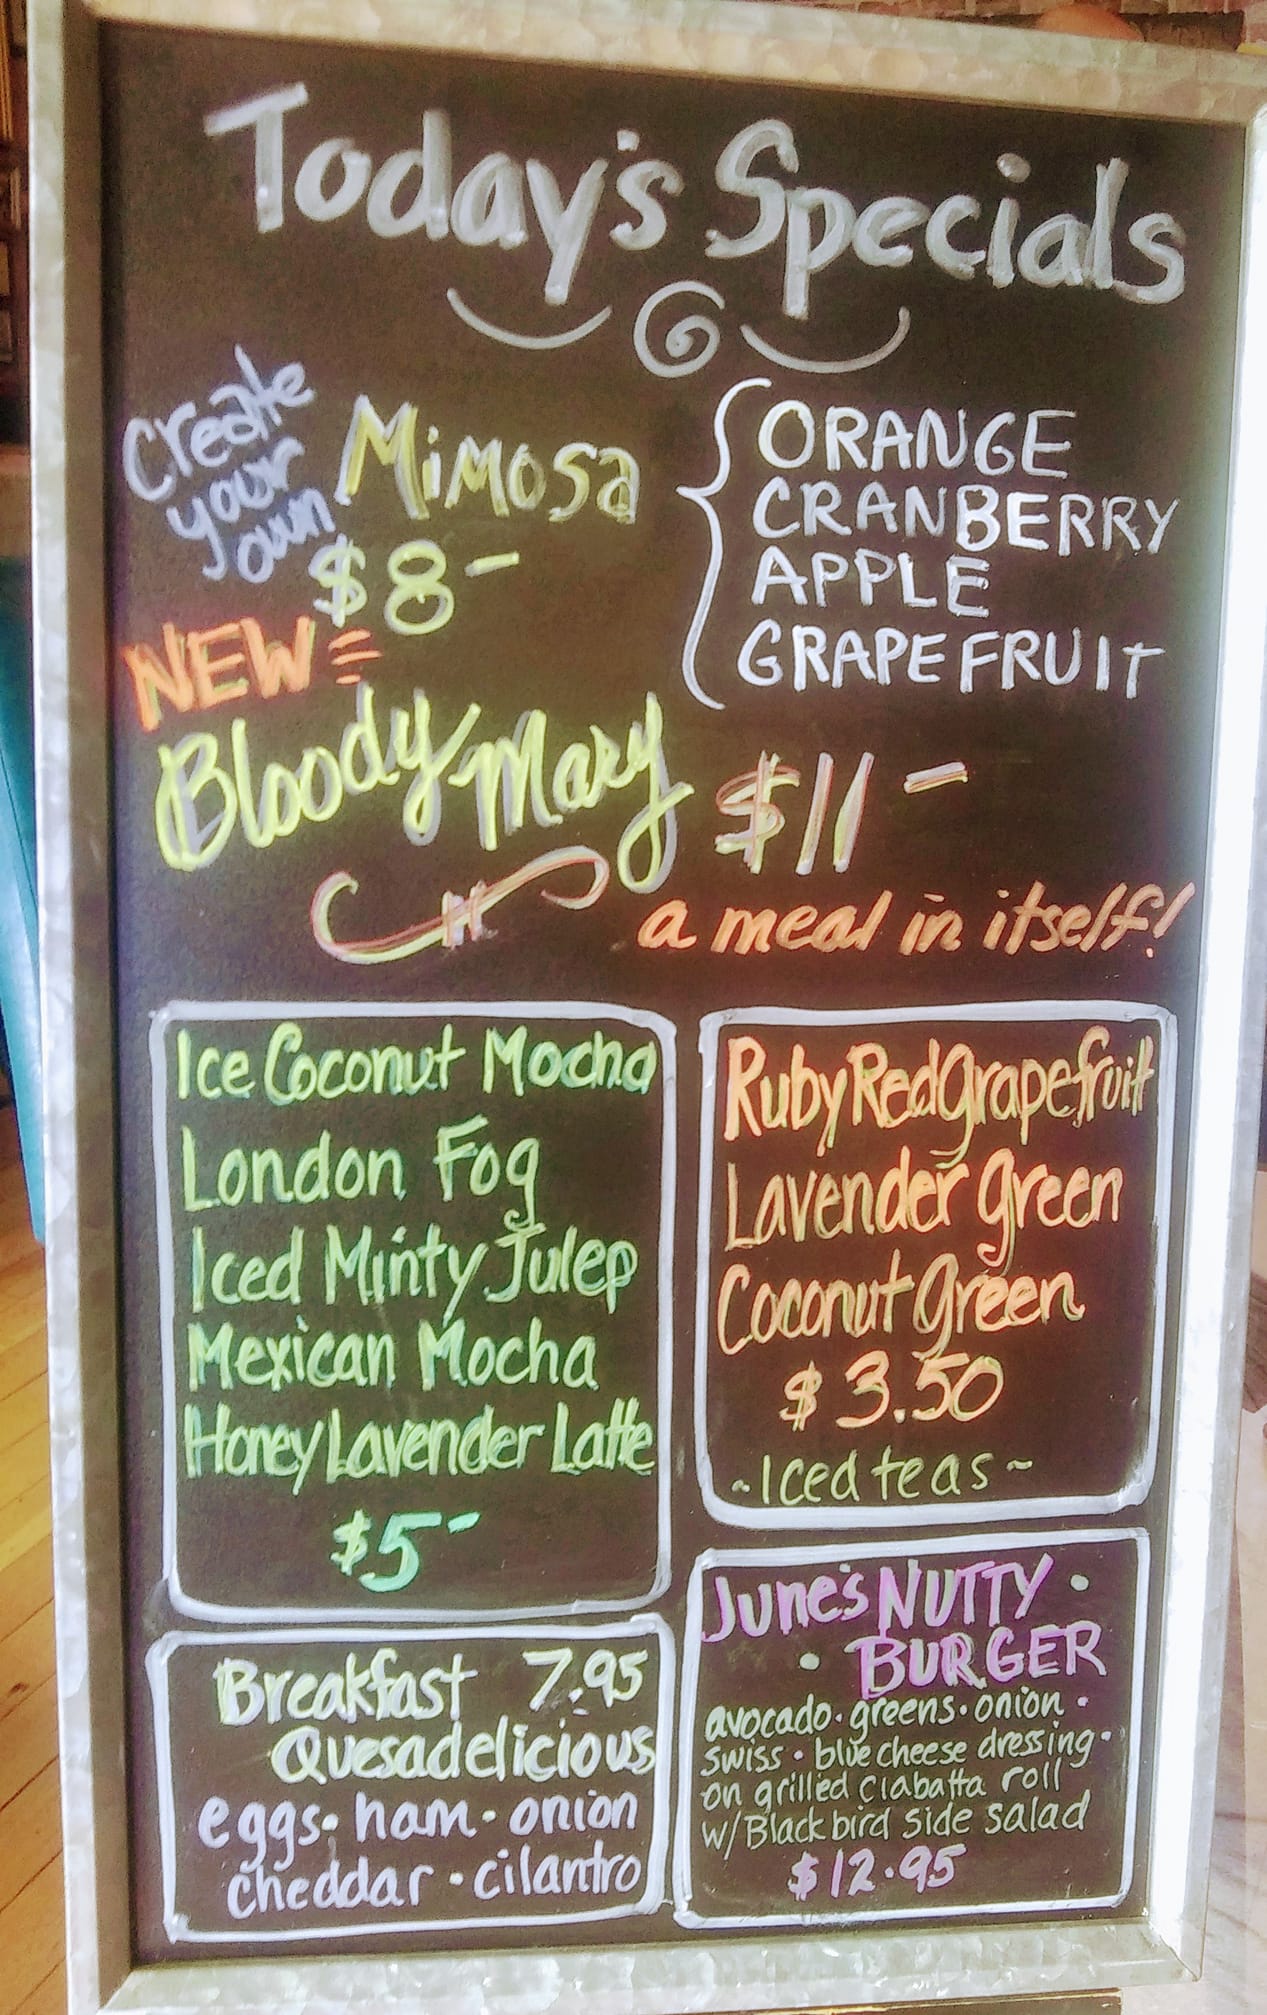 Today's Specials
Create
your
own
Mimosa
$8-
ORANGE
CRANBERRY
APPLE
GRAPEFRUIT
NEW
Bloody Mary $11-
a meal in itself!
Ice Coconut Mocha
London Fog
Iced Minty Julep
Mexican Mocha
Honey Lavender Latte
$5-
Ruby Red Grapefruit
Lavender Green
Coconut Green
$3.50
~Iced teas~
Breakfast 7.95
Quesadelicious
eggs • ham • onion
cheddar • cilantro
June's NUTTY •
• BURGER
avocado • greens • onion •
swiss • blue cheese dressing •
on grilled ciabatta roll
w/ Blackbird side salad
$12.95